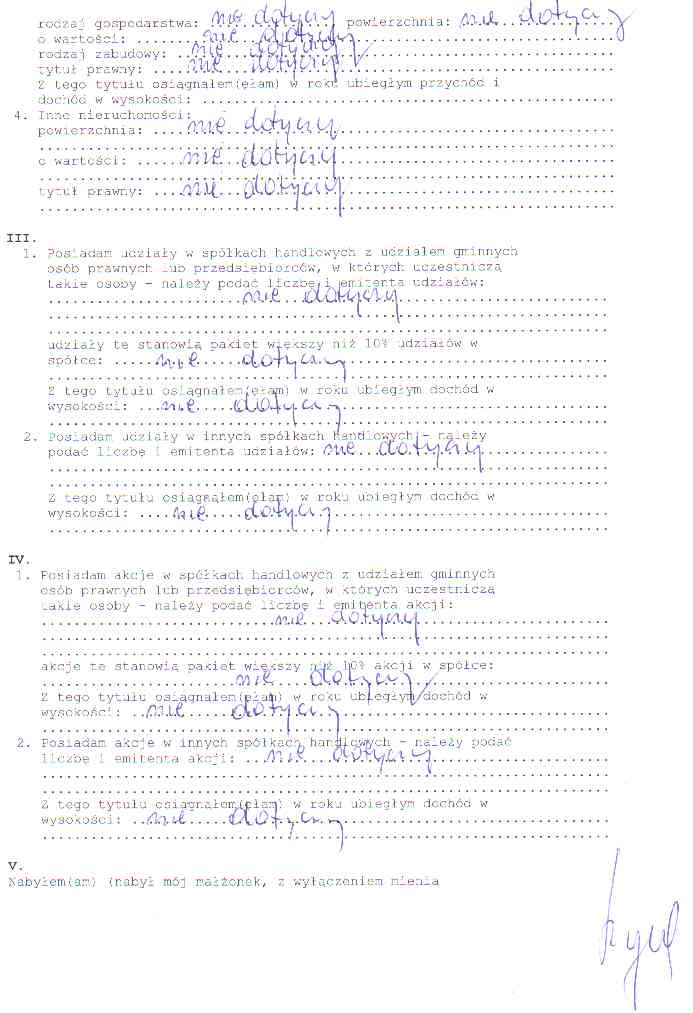 rodzaj gospodarstwa: nie dotyczy powierzchnia: nie dotyczy
o wartości: nie dotyczy
rodzaj zabudowy: nie dotyczy
tytuł prawny: nie dotyczy
Z tego tytułu osiągnąłem(ęłam) w roku ubiegłym przychód i
dochód w wysokości:
4. Inne nieruchomości:
powierzchnia: nie dotyczy
o wartości: nie dotyczy
tytuł prawny: nie dotyczy
III.
1. Posiadam udziały w spółkach handlowych z udziałem gminnych
osób prawnych lub przedsiębiorców, w których uczestniczą
takie osoby - należy podać liczbę i emitenta udziałów:
nie dotyczy
udziały te stanowią pakiet większy niż 10% udziałów w
spółce: nie dotyczy
Z tego tytułu osiągnąłem(ęłam) w roku ubiegłym dochód w
wysokości: nie dotyczy
2. Posiadam udziały w innych spółkach handlowych - należy
podać liczbę i emitenta udziałów: nie dotyczy
Z tego tytułu osiągnąłem(ęłam) w roku ubiegłym dochód w
wysokości: nie dotyczy
IV.
1. Posiadam akcje w spółkach handlowych z udziałem gminnych
osób prawnych lub przedsiębiorców, w których uczestniczą
takie osoby - należy podać liczbę i emitenta akcji:
nie dotyczy
akcje te stanowią pakiet większy niż 10% akcji w spółce:
nie dotyczy
Z tego tytułu osiągnąłem(ęłam) w roku ubiegłym dochód w
wysokości: nie dotyczy
2. Posiadam akcje w innych spółkach handlowych - należy podać
liczbę i emitenta akcji: nie dotyczy
Z tego tytułu osiągnąłem(ęłam) w roku ubiegłym dochód w
wysokości: nie dotyczy
V.
Nabyłem(am) (nabył mój małżonek, z wyłączeniem mienia